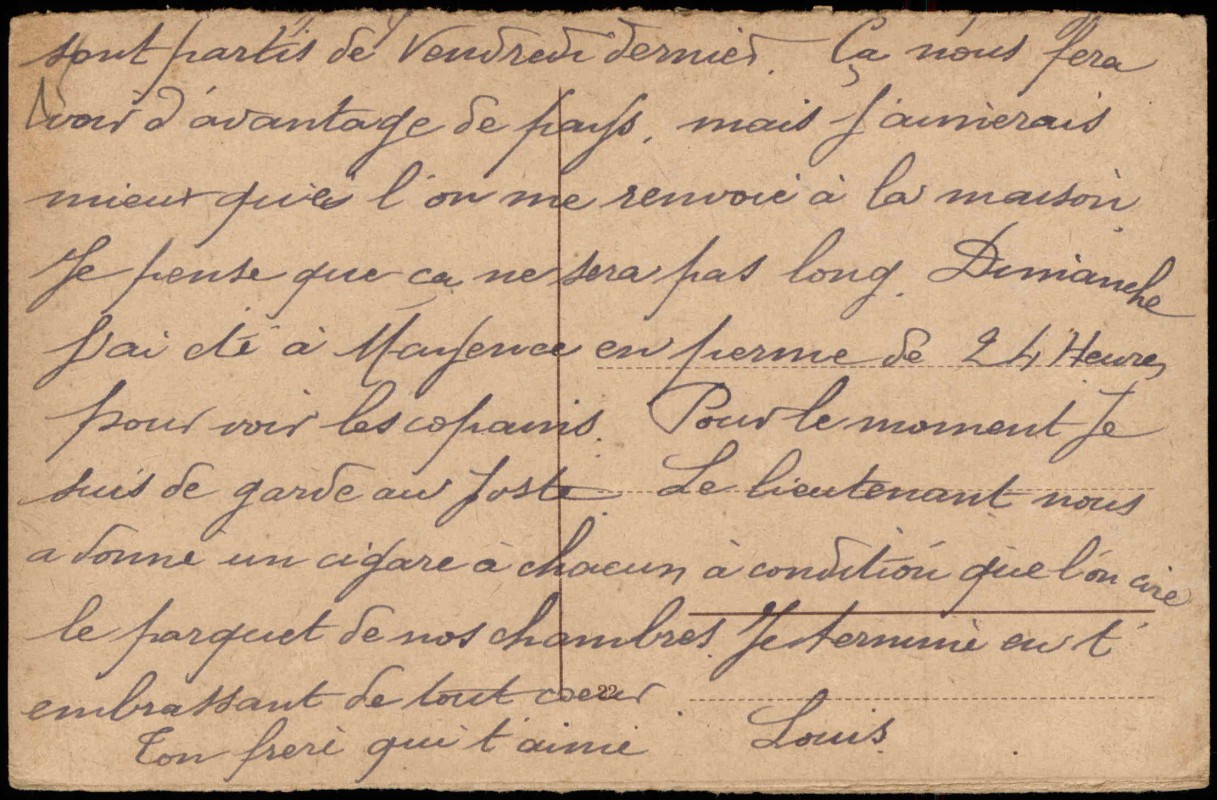 sont partis de Vendredi dernier. Ça nous fera
voir d'avantage de pays, mais j'aimerais
mieux que l'on me renvoie à la maison
Je pense que ca ne sera pas long. Dimanche
j'ai été à Mayence en perme de 24 Heures
pour voir les copains. Pour le moment Je
suis de garde au Poste Le lieutenant nous
a donné un cigare à chacun, à condition que l'on cire
le parquet de nos chambres. Je termine en t'
embrassant de tout coeur.
22
Ton frere qui t'aime Louis